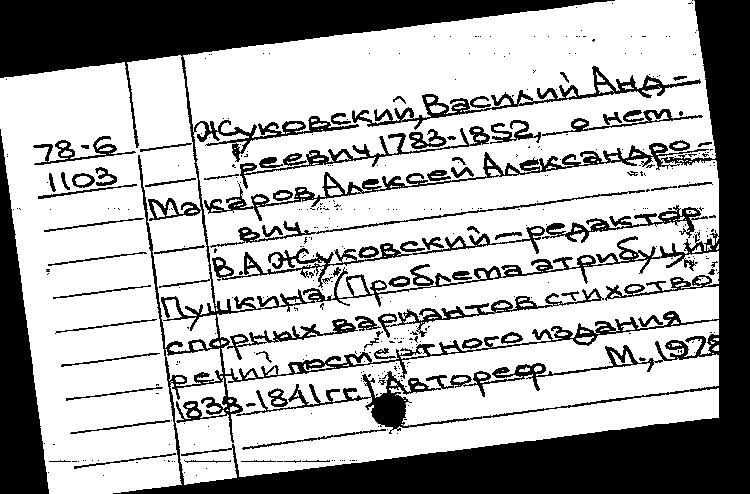 Жуковский, Василий Анд-
78-6 реевич, 1783-1852, о нем.
1103 Макаров, Алексей Александро-
вич.
В.А.Жуковский – редактор
Пушкина. (Проблема атрибуции
спорных вариантов стихотво
рений посмертного издания
1838-1841 гг.) Автореф. М., 1978